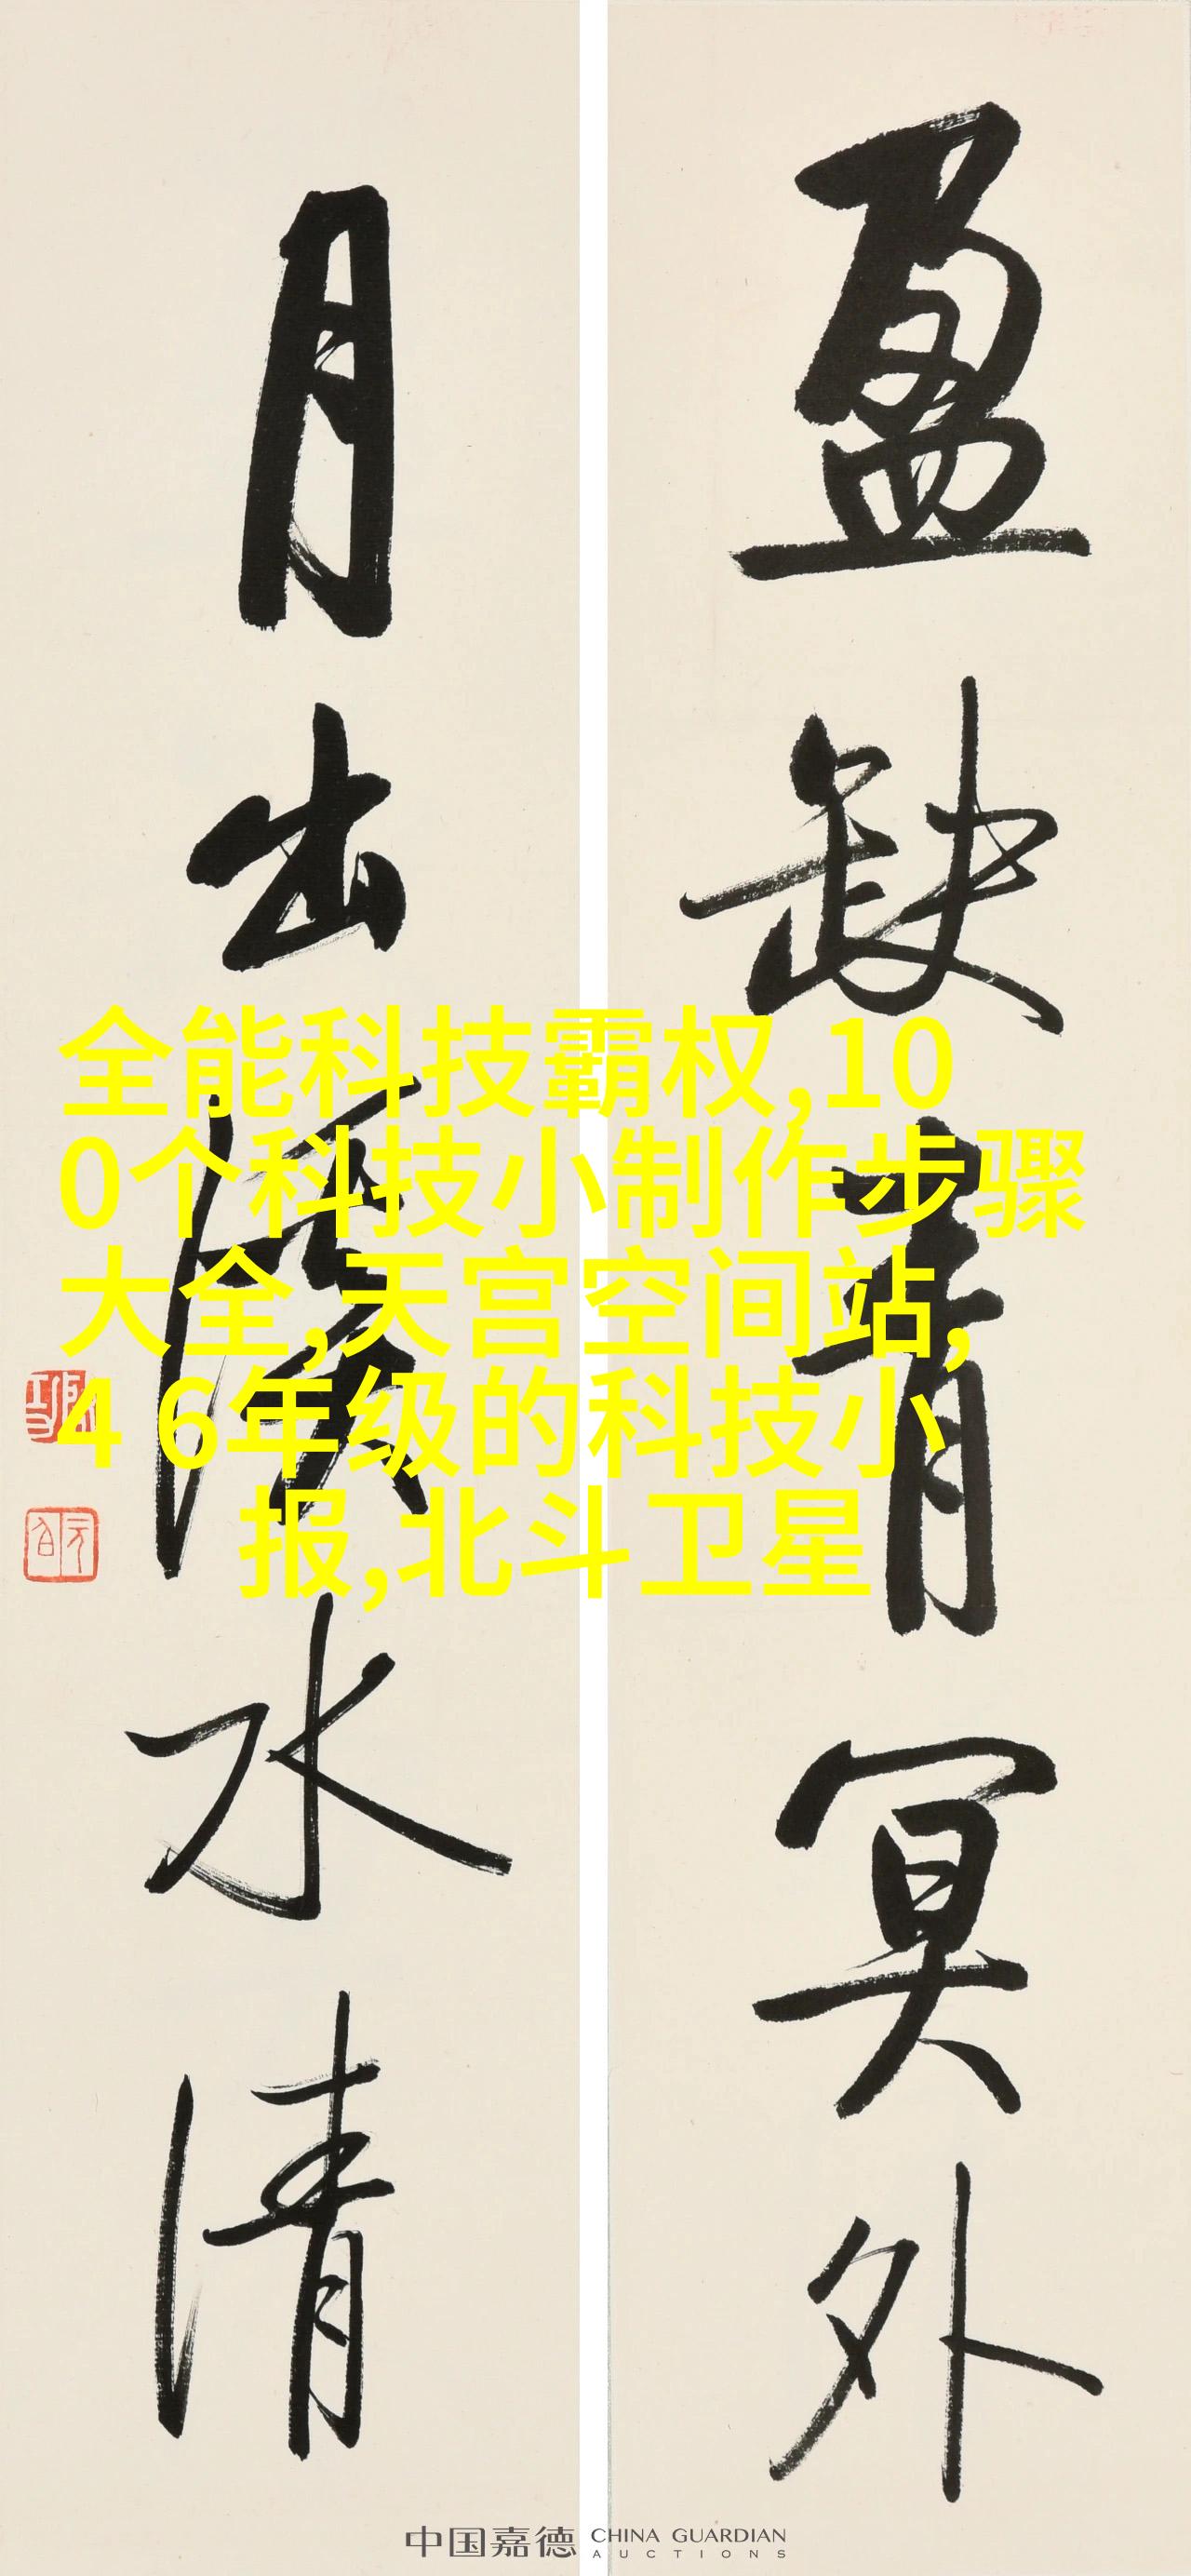 盈缺青冥外
月出溪水清
全能科技霸权,10
0个科技小制作步骤
大全,天宫空间站,
4 6年级的科技小
报,北斗卫星
中国嘉德 CHINA GUARDIAN
AUCTIONS